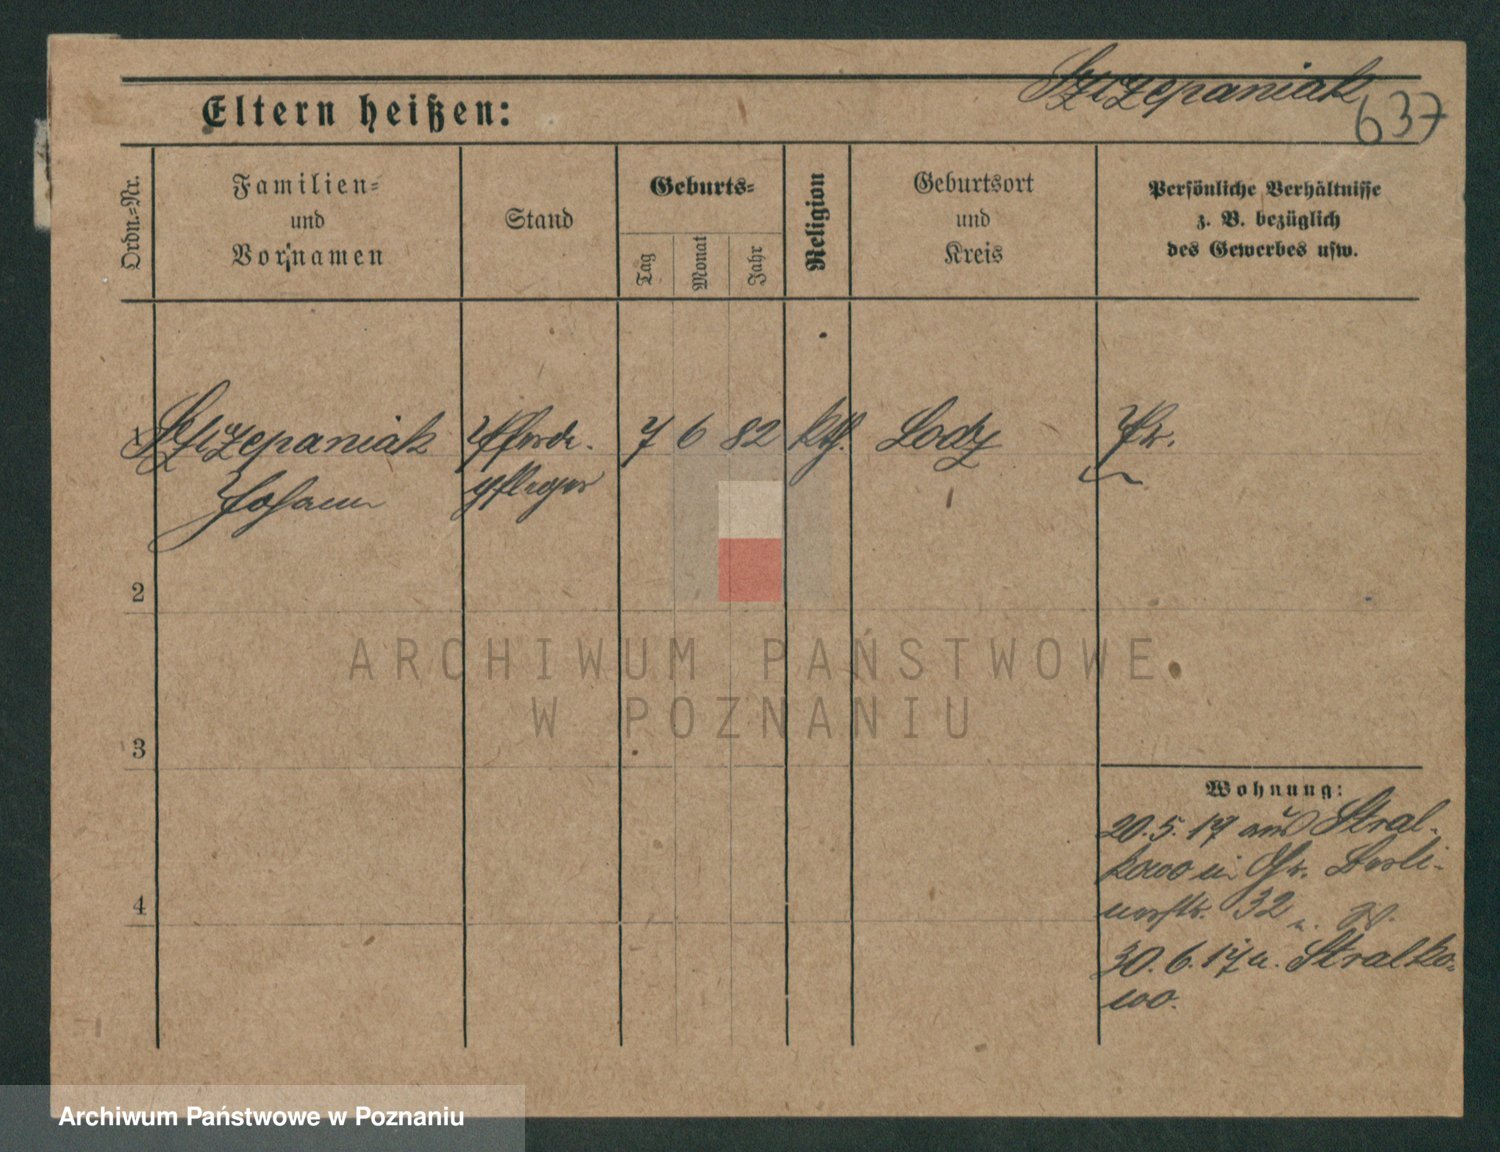 Szczepaniak
637
Eltern heißen:
Ordn.=Nr.
Familien=
und
Vornamen
Stand
Geburts=
Tag
Monat
Jahr
Religion
Geburtsort
und
Kreis
Persönliche Verhältnisse
z. B. bezüglich
des Gewerbes usw.
1 Szczepaniak Pferde- 7 6 82 kth. Lodz
Johann pfleger
2
3
4
Wohnung:
20.5.17 aus Stral-
kowo in Gr. Berli-
nerstr. 32
30.6.17 n. Stralko-
wo.
ARCHIWUM PAŃSTWOWE
W POZNANIU
Archiwum Państwowe w Poznaniu